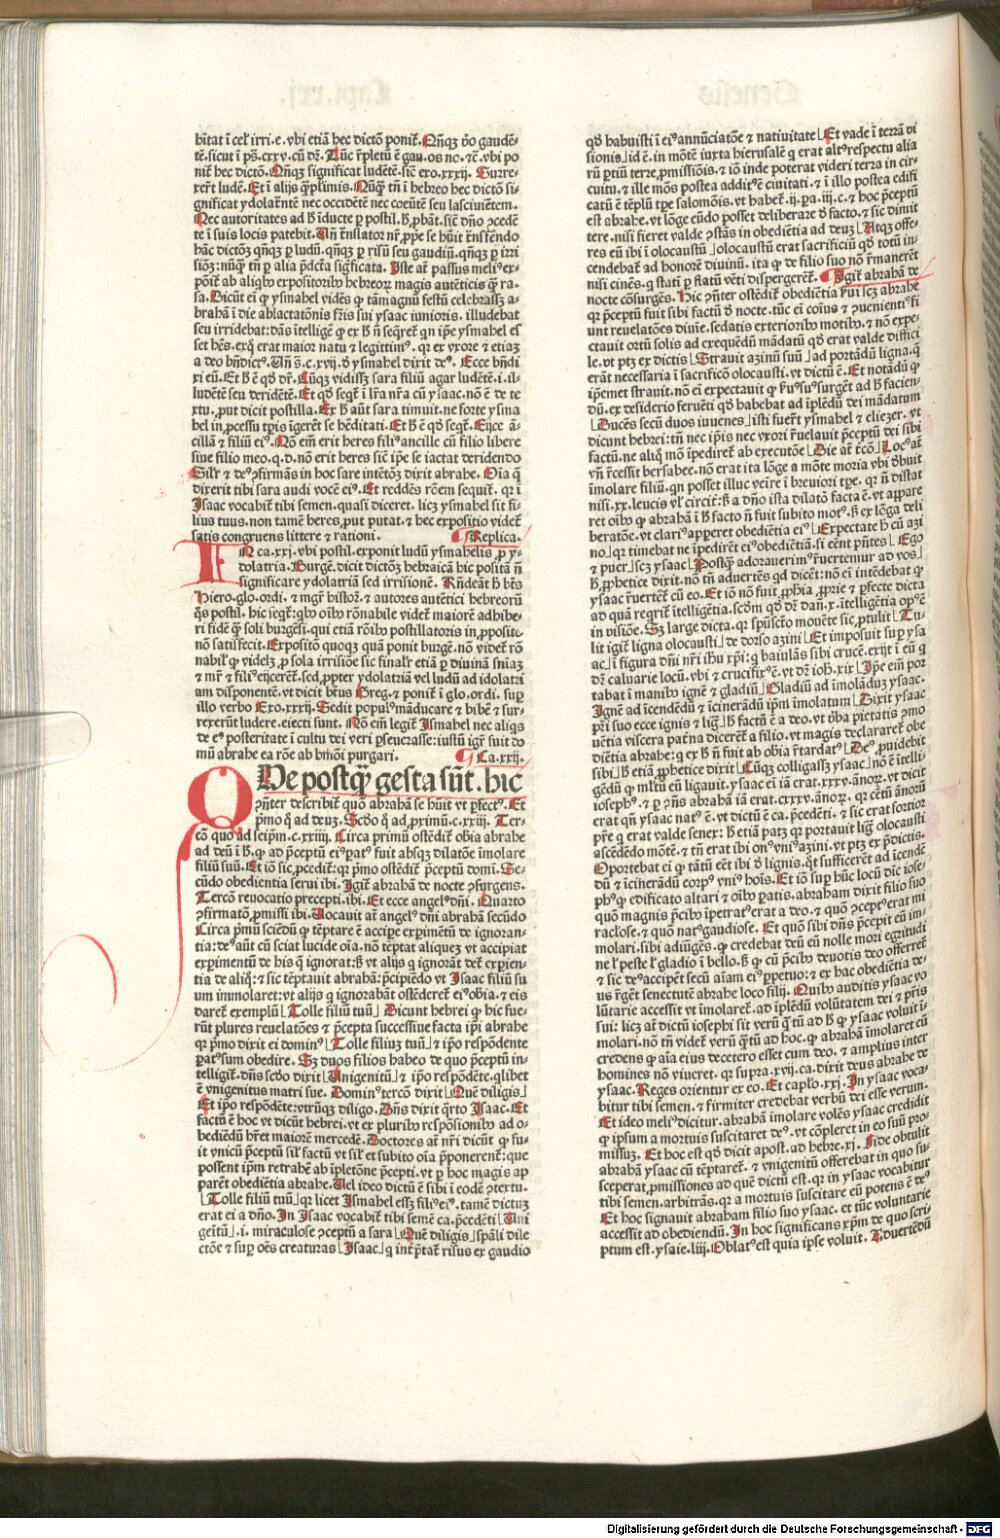 bitat ī cel̄ irri. e. vbi etiā hec dictō ponit̄. Qn̄qꝫ ꝟo gaudē-
tē. sicut ī ps̄. cxxv. cū dꝛ̄. Tūc r̄pletū ē gau. os no. ⁊c̄. vbi po
nit̄ hec dictō. Qn̄qꝫ significat ludētē. sic̄ ero. xxxij. Surre-
xer̄t ludē. Et ī alijs q̄plimis. Nūqꝫ tn̄ ī hebreo hec dictō si-
gnificat ydolatrātē nec occidētē nec coeūtē seu lasciuientem.
Nec autoritates ad h̄ īducte ꝑ postil. h̄ ꝓbāt. sic̄ dn̄o ↄcedē
te ī suis locis patebit. Un̄ trāslator nr̄, ꝓpe se hūit trāsferēdo
hāc dictōꝫ qn̄qꝫ ꝑ ludū. qn̄qꝫ ꝑ risū seu gaudiū. qn̄qꝫ ꝑ irri
siōꝫ: nūqꝫ tn̄ ꝑ alia p̄dicta sig̅ficata. Iste at̄ passus meliꝰ ex-
pōit̄ ab aliqb̄ expositoribꝫ hebreoꝝ magis autēticis ꝙ ra-
sa. Dicūt ei ꝙ ysmahel vidēs ꝙ tā magnū festū celebrassꝫ a-
brahā ī die ablactatōnis fr̄is sui ysaac iunioris. illudebat
seu irridebat: dās ītelligē ꝙ ex h̄ n̄ seqret̄ qn ip̄e ysmahel es
set hēs. exq̄ erat maior natu ⁊ legittimꝰ. qꝛ ex vxore ⁊ etiaꝫ
a deo bn̄dictꝰ. Un̄ s̄. c. xvij. d̄ ysmahel dixit deꝰ. Ecce bn̄di
xi eū. Et h̄ ē qd̄ dꝛ̄. Cūqꝫ vidissꝫ sara filiū agar ludētē. i. il-
ludētē seu deridētē. Et qd̄ seqt̄ ī lr̄a nr̄a cū ysaac. nō ē de te
xtu, put dicit postilla. Ex h̄ aūt sara timuit. ne forte ysma
hel in, pcessu tꝑis īgerēt se hēditati. Et h̄ ē qd̄ seqt̄. Eijce ā-
cillā ⁊ filiū eiꝰ. Nō em̄ erit heres filiꝰ ancille cū filio libere
siue filio meo. q. d. nō erit heres sic̄ ip̄e se iactat deridendo
Silr̄ ⁊ deꝰ ↄfirmās in hoc sare intētōꝫ dixit abrahe. Oīa q̄
dixerit tibi sara audi vocē eiꝰ. Et reddēs rōem sequit̄. qꝛ ī
Isaac vocabit̄ tibi semen. quasi diceret. licꝫ ysmahel sit fi-
lius tuus. non tamē heres, put putat. ⁊ hec expositio videt̄
satis congruens littere ⁊ rationi. ¶ Replica.
IN ca. xxj. vbi postil. exponit ludū ysmahelis, ꝓ y-
dolatria. Burgē. dicit dictōꝫ hebraicā hic positā n̄
significare ydolatriā sed irrisionē. Rn̄deāt h̄ btūs
Hiero. glo. ordi. ⁊ mgr̄ histoꝛ. ⁊ autores autētici hebreorū
q̄s postil. hic seqt̄: qb̄ oīb̄ rōnabile videt̄ maiorē adhibe-
ri fidē ꝙ soli burgēsi. qui etiā rōib̄ postillatoris in, pposito
nō satisfecit. Expositō quoqꝫ quā ponit burgē. nō videt̄ rō
nabil̄ ꝙ videlꝫ, ꝓ sola irrisiōe sic finalr̄ etiā ꝑ diuinā sn̄iaꝫ
⁊ mr̄ ⁊ filiꝰ eijcerēt̄. sed, ꝓpter ydolatriā vel ludū ad idolatri
am disponentē. vt dicit btūs Greg. ⁊ ponit̄ ī glo. ordi. suꝑ
illo verbo Exo. xxxij. Sedit populꝰ māducare ⁊ bibē ⁊ sur-
rexerūt ludere. eiecti sunt. Nō em̄ legit̄ Ismahel nec aliqs
de eꝰ posteritate ī cultu dei veri ꝑseuerasse: iustū igr̄ fuit do
mū abrahe ea rōe ab hmōi purgari. ¶ Ca. xxij.
QVe postqꝫ gesta sūt. hic
ↄn̄ter describit̄ quō abrahā se hūit vt ꝑfectꝰ. Et
p̄mo q̄ ad deuꝫ. Scd̄o q̄ ad, primū. c. xxiij. Ter-
cō quo ad seip̄m. c. xxiiij. Circa primū ostēdit̄ obīa abrahe
ad deū ī h̄. ꝙ ad p̄ceptū eiꝰ patꝰ fuit absqꝫ dilatōe īmolare
filiū suū. Et iō sic, pcedit̄: qꝛ p̄mo ostēdit̄ p̄ceptū domi. Se-
cūdo obedientia serui ibi. Igit̄ abrahā de nocte ↄsurgens.
Tercō reuocatio precepti. ibi. Et ecce angelꝰ dn̄i. Quarto
ↄfirmatō, pmissi ibi. Uocauit at̄ angelꝰ dn̄i abrahā secūdo
Circa p̄mū sciēdū ꝙ tēptare ē accipe experimētū de ignoran-
tia: deꝰ aūt cū sciat lucide oīa. nō tēptat aliquez vt accipiat
experimentū de his q̄ ignorat: h̄ vt alijs q̄ ignorāt det̄ experien-
tia de aliq̄: ⁊ sic tēptauit abrahā: p̄cipiēdo vt Isaac filiū su
um immolaret: vt alijs q̄ ignorabāt ostēderet̄ eiꝰ obīa. ⁊ eis
daret̄ exemplū ⌊Tolle filiū tuū⌋ Dicunt hebrei ꝙ hic fue-
rūt plures reuelatōes ⁊ p̄cepta successiue facta ip̄i abrahe
qꝛ p̄mo dixit ei dominꝰ ⌊Tolle filiuꝫ tuū⌋ ⁊ ip̄o respōdente
paratꝰ sum obedire. Sꝫ duos filios habeo de quo p̄ceptū in-
telligit̄. dn̄s scd̄o dixit ⌊Unigenitū⌋ ⁊ ip̄o respōdēte. qlibet
ē vnigenitus matri sue. Dominꝰ tercō dixit ⌊Quē diligis⌋
Et ip̄o respōdēte: vtrūqꝫ diligo. Dn̄s dixit q̄rto Isaac. Et
factū ē hoc vt dicūt hebrei. vt ex plurib̄ respōsionib̄ ad o-
bediēdū hr̄et maiorē mercedē. Doctores at̄ nr̄i dicūt ꝙ fu-
it vnicū p̄ceptū sil̄ factū vt sil̄ et subito oīa ↄponerent̄: que
possent ip̄m retrahē ab īpletōne p̄cepti. vt ꝑ hoc magis ap
parēt obediētia abrahe. Uel ideo dictū ē sibi ī eodē ↄtextu.
⌊Tolle filiū tuū⌋ qꝛ licet Ismahel essꝫ filiꝰ eiꝰ. tamē dictuꝫ
erat ei a dn̄o. In Isaac vocabit̄ tibi semē ca. p̄cedēti ⌊Uni
geītū⌋. i. miraculose ↄceptū a sara ⌊Quē diligis⌋ sp̄ali dile
ctōe ⁊ suꝑ oēs creaturas ⌊Isaac⌋ q̄ int̄ꝑtat̄ risus ex gaudio
qd̄ habuisti ī eiꝰ annūciatōe ⁊ natiuitate ⌊Et vade ī terrā vi
sionis⌋ id ē. in mōtē iuxta hierusalē q̄ erat altꝰ respectu alia
rū ꝑtiū terre, pmissiōis. ⁊ iō inde poterat videri terra in cir-
cuitu. ⁊ ille mōs postea addituꝰ ē ciuitati. ⁊ ī illo postea edifi
catū ē tēplū tꝑe salomōis. vt habet̄. ij. pa. iij. c. ⁊ hoc p̄ceptū
est abrahe. vt lōge eūdo posset deliberare d̄ facto. ⁊ sic dimit
tere. nisi fieret valde ↄstās in obediētia ad deuꝫ ⌊Atqꝫ offe-
res eū ibi ī olocaustū⌋ olocaustū erat sacrificiū qd̄ totū in-
cendebat̄ ad honorē diuinū. ita ꝙ de filio suo nō r̄manerēt
nisi cinēs. q̄ stati ꝑ flatū vēti dispergerēt̄. ¶ Igit̄ abrahā de
nocte cōsurgēs. Hic ↄn̄ter ostēdit̄ obediētia ẜui scꝫ abrahe
qꝛ p̄ceptū fuit sibi factū d̄ nocte. tūc ei coīus ⁊ ↄuenientiꝰ fi
unt reuelatōes diuīe. sedatis exteriorib̄ motib̄. ⁊ nō expe-
ctauit ortū solis ad exequēdū mādatū qd̄ erat valde diffici
le. vt ptꝫ ex dictis ⌊Strauit azinū suū⌋ ad portādū ligna. q̄
erāt necessaria ī sacrificō olocausti. vt dictū ē. Et notādū ꝙ
ip̄emet strauit. nō ei expectauit ꝙ ẜuꝰ suꝰ surgēt ad h̄ facien-
dū. ex desiderio feruēti qd̄ habebat ad īplēdū dei mādatum
⌊Ducēs secū duos iuuenes⌋ isti fuer̄t ysmahel ⁊ eliezer. vt
dicunt hebrei: tn̄ nec ip̄is nec vxori r̄uelauit p̄ceptū dei sibi
factū. ne aliq̄ mō īpediret̄ ab executōe ⌊Die at̄ t̄cō⌋ Locꝰ at̄
vn̄ r̄cessit bersabee. nō erat ita lōge a mōte moria vbi d̄buit
īmolare filiū. qn posset illuc veīre ī breuiori tꝑe. qꝛ n̄ distat
nisi. xx. leucis vl̄ circit̄: ẞ a dn̄o ista dilatō facta ē. vt appare
ret oīb̄ ꝙ abrahā ī h̄ facto n̄ fuit subito motꝰ. ẞ ex lōga deli
beratōe. vt clariꝰ apperet obediētia eiꝰ ⌊Expectate h̄ cū azi
no⌋ qꝛ timebat ne īpedirēt eiꝰ obediētiā. si eēnt p̄ntes ⌊Ego
⁊ puer⌋ scꝫ ysaac ⌊Postqꝫ adorauerimꝰ r̄uertemur ad vos⌋
h̄, ꝓphetice dixit. nō tn̄ aduertēs qd̄ dicēt: nō ei intēdebat ꝙ
ysaac r̄uertet̄ cū eo. Et iō nō fuit, ꝓphīa, ꝓprie ⁊ ꝑfecte dicta
ad quā reqrit̄ ītelligētia. scd̄m qd̄ dꝛ̄ dan̄. x. ītelligētia opꝰ ē
in visiōe. Sꝫ large dicta. qꝛ spūscō mouēte sic, ptulit ⌊Tu-
lit igit̄ ligna olocausti⌋ de dorso azini ⌊Et imposuit suꝑ ysa
ac⌋ ī figura dn̄i nr̄i ih̄u xp̄i: q̄ baiulās sibi crucē. exijt ī eū q̄
dꝛ̄ caluarie locū. vbi ⁊ crucifixꝰ ē. vt dꝛ̄ ioh̄. xix ⌊Ip̄e em̄ por
tabat ī manib̄ ignē ⁊ gladiū⌋ Gladiū ad īmolāduꝫ ysaac.
Ignē ad īcendēdū ⁊ ī cinerādū ip̄m īmolatum ⌊Dixit ysaac
pr̄i suo ecce ignis ⁊ lig⌋ h̄ factū ē a deo. vt ꝟba pietatis ↄmo
uētia viscera pat̄na dicerēt̄ a filio. vt magis declararet̄ obe
diētia abrahe: q̄ ex h̄ n̄ fuit ab obīa r̄tardatꝰ ⌊Deꝰ, puidebit
sibi⌋ h̄ etiā, ꝓphetice dixit ⌊Cūqꝫ colligassꝫ ysaac⌋ nō ē ītelli-
gēdū ꝙ mltū eū ligauit. ysaac ei iā erat. xxxv. ānoꝝ. vt dicit
iosephꝰ. ⁊ ꝑ ↄn̄s abrahā iā erat. cxxxv. ānoꝝ. qꝛ cētū ānorū
erat qn̄ ysaac natꝰ ē. vt dictū ē ca. p̄cedēti. ⁊ sic erat fortior
pr̄e q̄ erat valde senex: h̄ etiā patꝫ qꝛ portauit lig olocausti
ascēdēdo mōtē. ⁊ tn̄ erat ibi onꝰ vniꝰ azini. vt ptꝫ ex p̄dictis.
Oportebat ei ꝙ tātū eēt ibi d̄ lignis. qt̄ sufficerēt ad īcendē
dū ⁊ icinerādū corpꝰ vniꝰ hoīs. Et iō suꝑ hūc locū dic iose-
phꝰ ꝙ edificato altari ⁊ oīb̄ patis. abraham dixit filio suo
quō magnis p̄cib̄ īpetratꝰ erat a deo. ⁊ quō ↄceptꝰ erat mi
raclose. ⁊ quō natꝰ gaudiose. Et quō sibi dn̄s p̄cepit eū im-
molari. sibi adiūgēs. ꝙ credebat deū eū nolle mori egritudi
ne l̄ peste l̄ gladio ī bello. ẞ ꝙ cū p̄cib̄ deuotis deo offerret̄
⁊ sic deꝰ accipēt secū aīam eiꝰ ꝑpetuo: ⁊ ex hac obediētia de-
us r̄gēt senectutē abrahe loco filij. Quib̄ auditis ysaac vo
lūtarie accessit vt īmolaret̄. ad īplēdū volūtatem dei ⁊ pr̄is
sui: licꝫ at̄ dictū iosephi sit verū q̄tū ad h̄ ꝙ ysaac voluit ī-
molari. nō tn̄ videt̄ verū q̄tū ad hoc. ꝙ abrahā īmolaret cū
credens ꝙ aīa eius decetero esset cum deo. ⁊ amplius inter
homines nō viueret. qꝛ supra. xvij. ca. dixit deus abrahe de
ysaac. Reges orientur ex eo. Et capl̄o. xxj. In ysaac voca-
bitur tibi semen. ⁊ firmiter credebat verbū dei esse verum.
Et ideo meliꝰ dicitur. abrahā īmolare volēs ysaac credidit
ꝙ ipsum a mortuis suscitaret deꝰ. vt cōpleret in eo suū pro-
missuꝫ. Et hoc est qd̄ dicit apost. ad hebre. xj. Fide obtulit
abrahā ysaac cū tēptaret̄. ⁊ vnigenitū offerebat in quo su-
sceperat, pmissiones ad quē dictū est. qꝛ in ysaac vocabitur
tibi semen. arbitrās. qꝛ a mortuis suscitare eū potens ē deꝰ
Et hoc signauit abraham filio suo ysaac. et tūc voluntarie
accessit ad obediendū. In hoc significans xp̄m de quo scri
ptum est. ysaie. liij. Oblatꝰ est quia ipse voluit. Aduertēdū
Digitalisierung gefördert durch die Deutsche Forschungsgemeinschaft - DFG